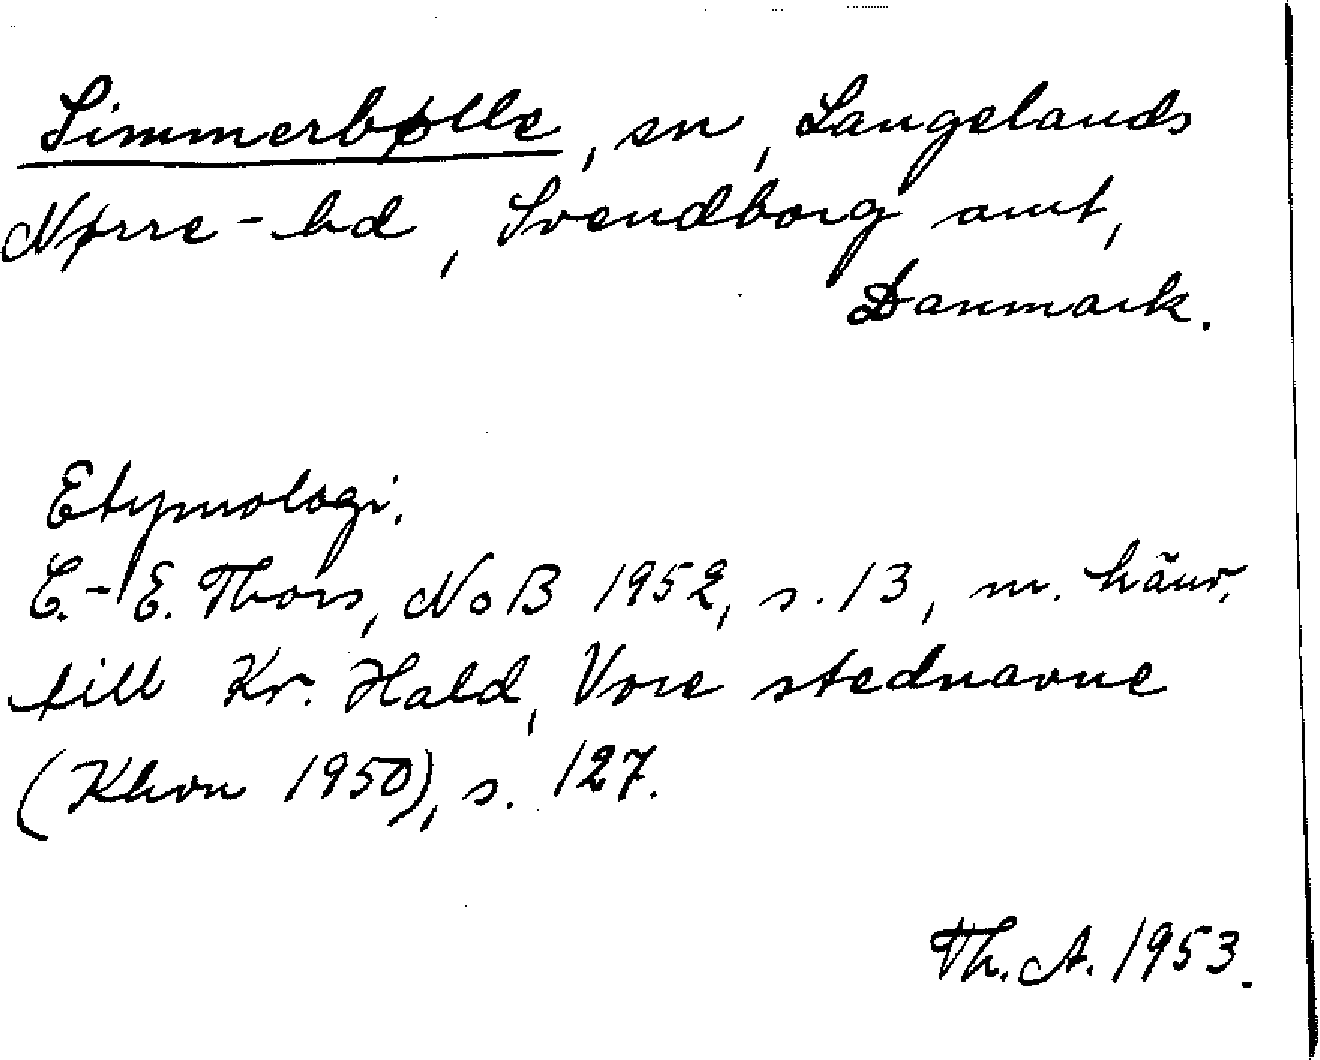 Simmerbølle, sn, Langelands
Nørre-hd, Svendborg amt,
Danmark.
Etymologi.
C.-E. Thors, NoB 1952, s. 13, m. hänv.
till Kr. Hald, Vore stednavne
(Khvn 1950), s. 127.
Th. A. 1953.